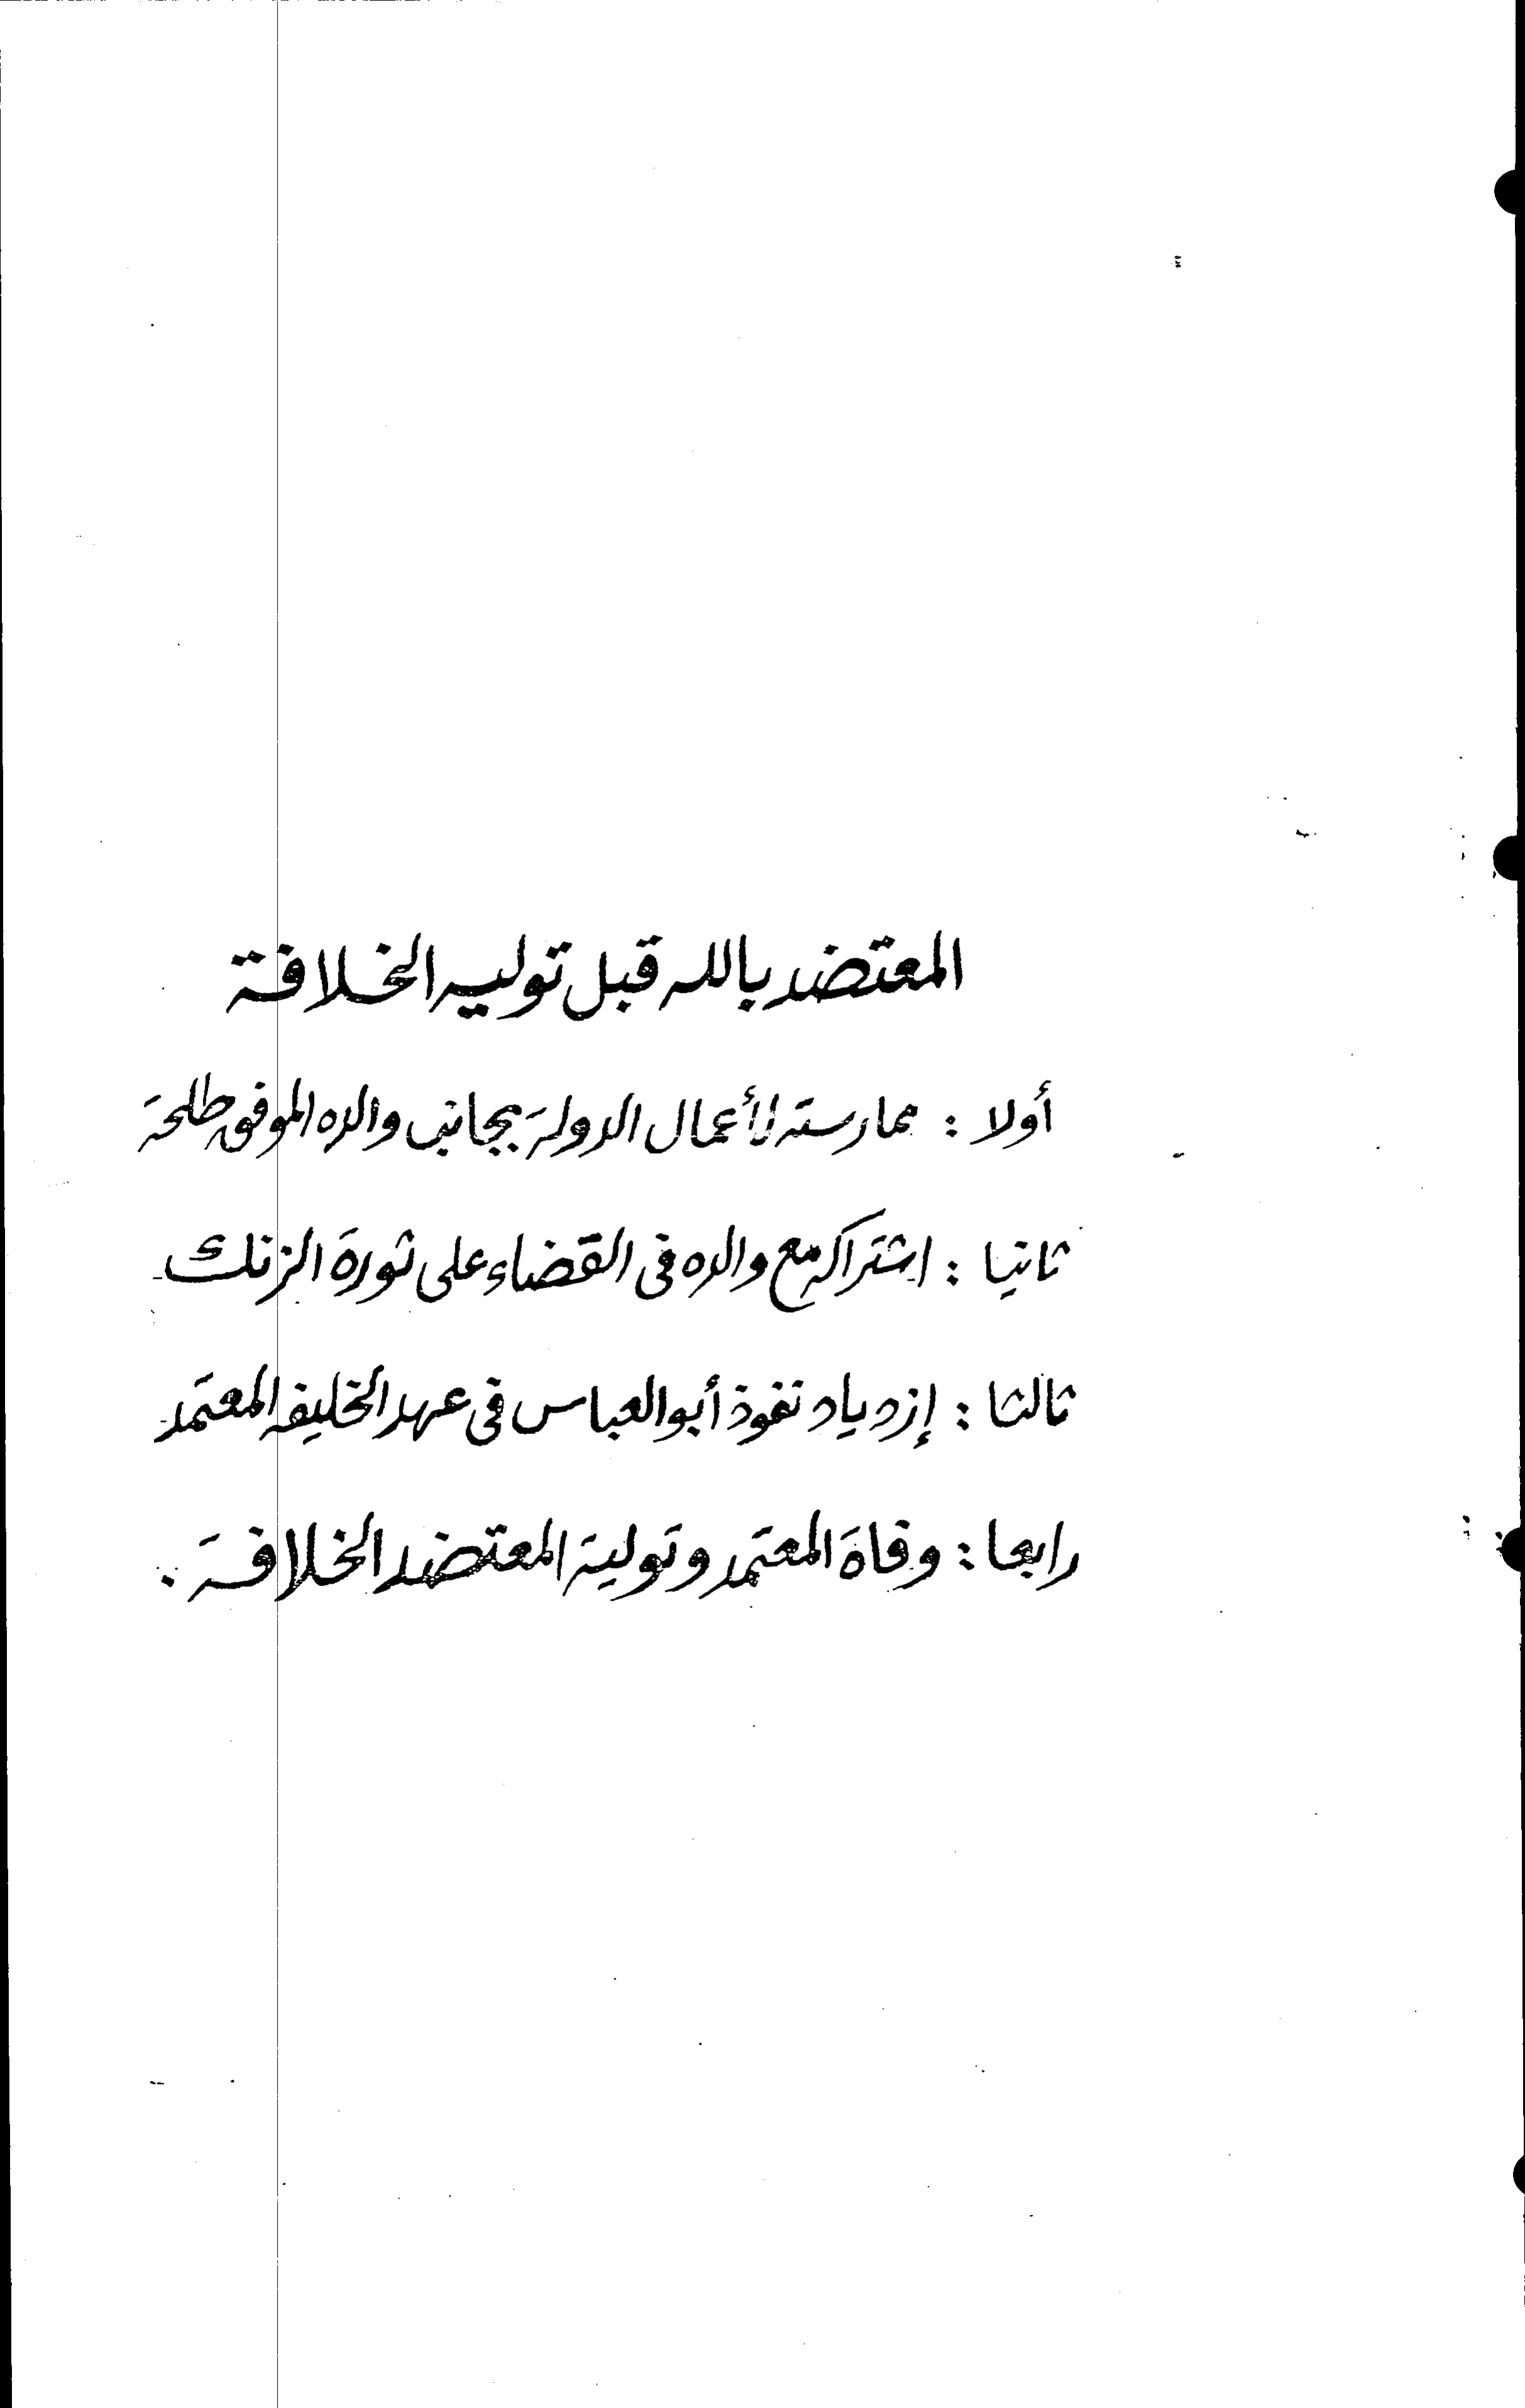 المعتضد بالله قبل توليه الخلافة
أولا : ممارسته لأعمال الدولة بجانب والده الموفق طلحة
ثانيا : اشتراكه مع والده فى القضاء على ثورة الزنك
ثالثا : إزدياد نفوذ أبو العباس فى عهد الخليفه المعتمد
رابعا : وفاة المعتمد وتولية المعتضد الخلافة .